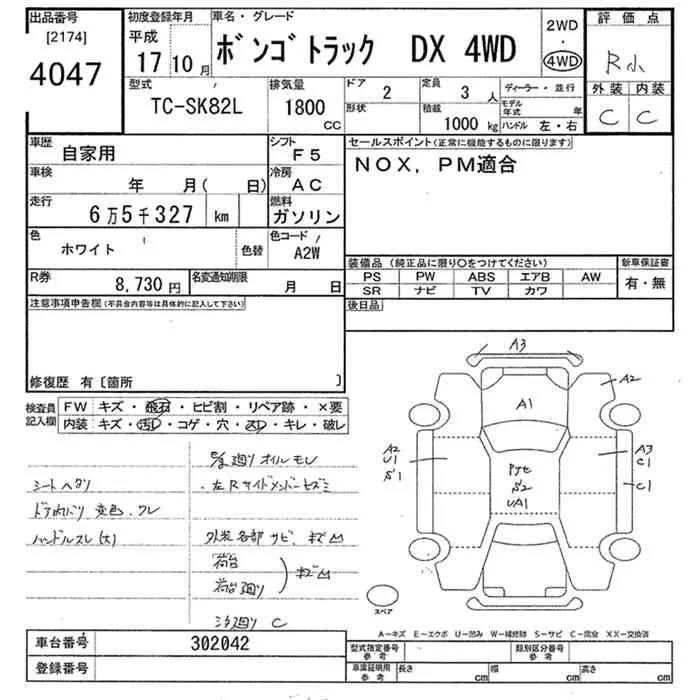 出品番号 初度登録年月 車名・グレード 2WD 評価点
[2174] 平成 ・
4047 17年10月 ボンゴトラック DX 4WD 4WD R小
型式 排気量 ドア 2 定員 3人 ディーラー・並行 外装 内装
TC-SK82L 1800cc 形状 積載 1000kg モデル年式 年 C C
ハンドル 左・右
車歴 自家用 シフト F5 セールスポイント(正常に機能するものに限ります)
車検 年 月( 日) 冷房 AC NOX, PM適合
走行 6万5千327 km 燃料 ガソリン
色 ホワイト 色替 色コード A2W 装備品 (純正品に限り○をつけてください) 新車保証書
R券 8,730円 名変通知期限 月 日 PS PW ABS エアB AW 有・無
SR ナビ TV カワ
注意事項申告欄(不具合内容等は具体的に記入して下さい) 後日品
修復歴 有〔箇所 〕
検査員記入欄 FW キズ・飛石・ヒビ割・リペア跡・×要
内装 キズ・汚レ・コゲ・穴・スレ・キレ・破レ
廻りオイルモレ
シートヘタリ ・左Rサイドメンバーヒズミ
ドア内バリ 変色・ワレ
ハンドルスレ(大) 外装各部サビ、キズ凹
荷台
荷台廻り キズ凹
C
A3
A2
A1
A2 A3
U1 C1
S1 C1
S2
UA1
スペア
A-キズ E-エクボ U-凹み W-補修跡 S-サビ C-腐食 XX-交換済
車台番号 302042 型式指定番号 参考 類別区分番号 参考
登録番号 車庫証明用 参考 長さ cm 幅 cm 高さ cm